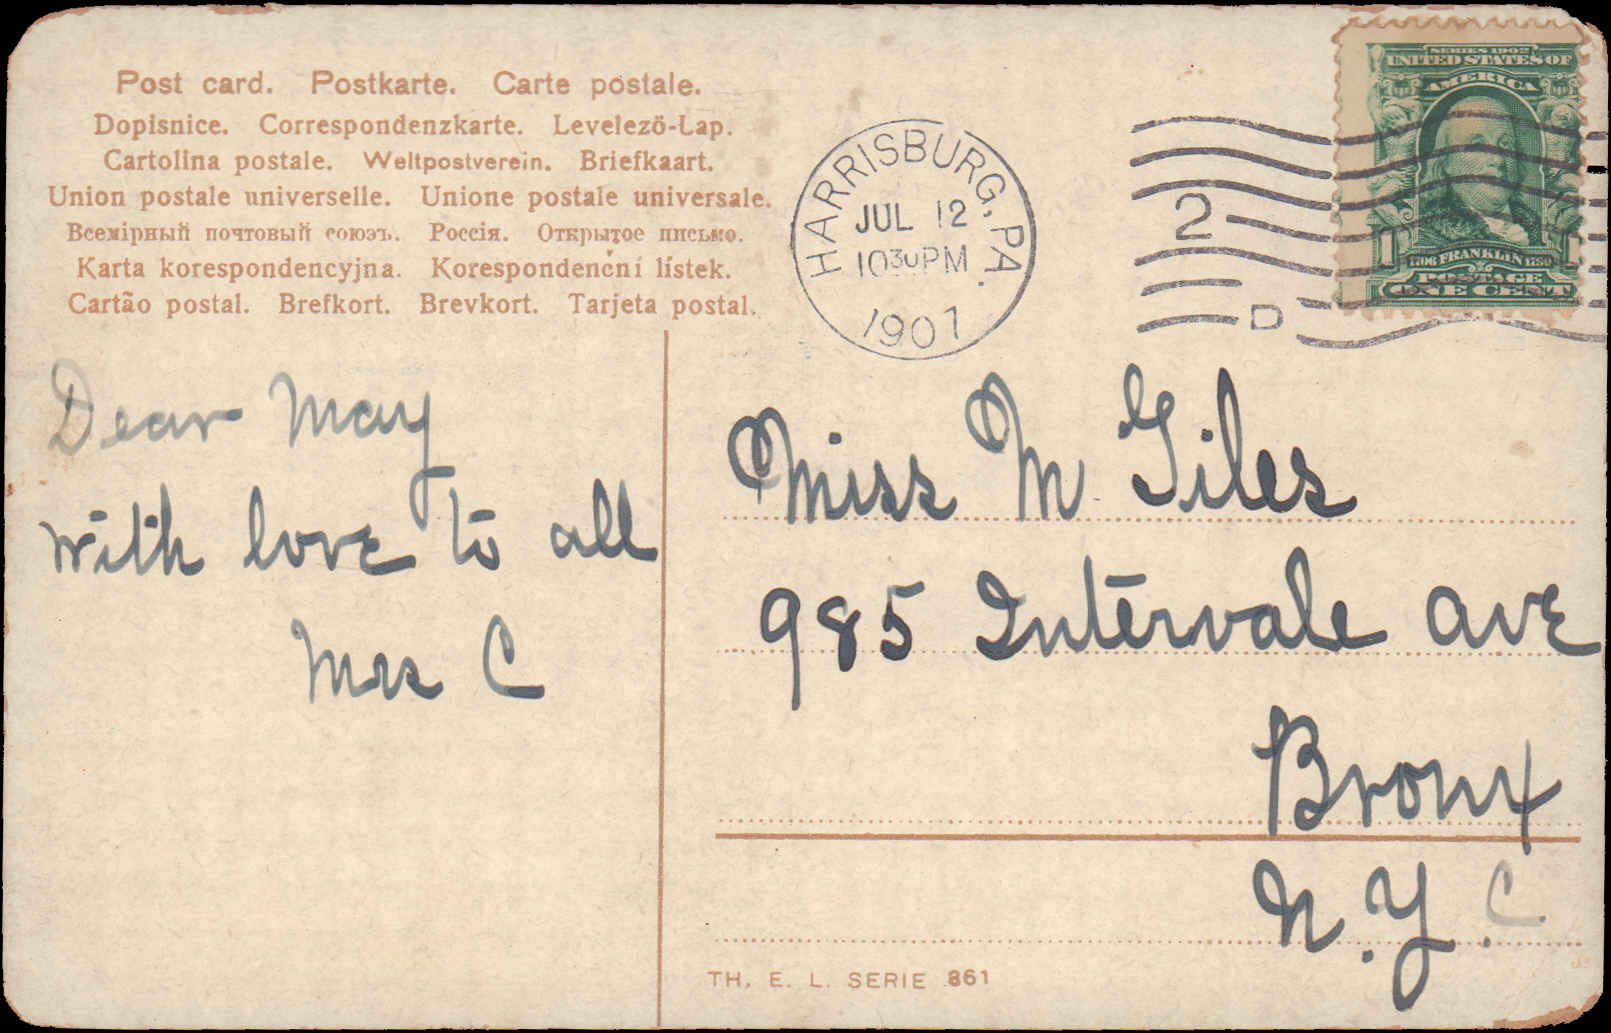 Post card. Postkarte. Carte postale.
Dopisnice. Correspondenzkarte. Levelezö-Lap.
Cartolina postale. Weltpostverein. Briefkaart.
Union postale universelle. Unione postale universale.
Всемірный почтовый союзъ. Россія. Открытое письмо.
Karta korespondencyjna. Korespondenční lístek.
Cartão postal. Brefkort. Brevkort. Tarjeta postal.
HARRISBURG, PA.
JUL 12
10 30 PM
1907
2
D
SERIES 1902
UNITED STATES OF
AMERICA
1
1706 FRANKLIN 1790
POSTAGE
ONE CENT
Dear May
with love to all
Mrs C
Miss M Giles
985 Intervale ave
Bronx
N.Y.C
TH. E. L. SERIE 861